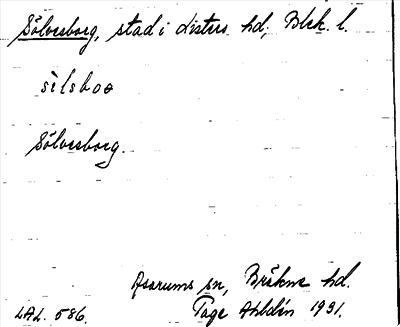 Sölvesborg, stad i Listers hd, Blek. l.
sìlsboə
Sölvesborg.
Asarums sn, Bräkne hd.
LAL. 586. Tage Ahldén 1931.